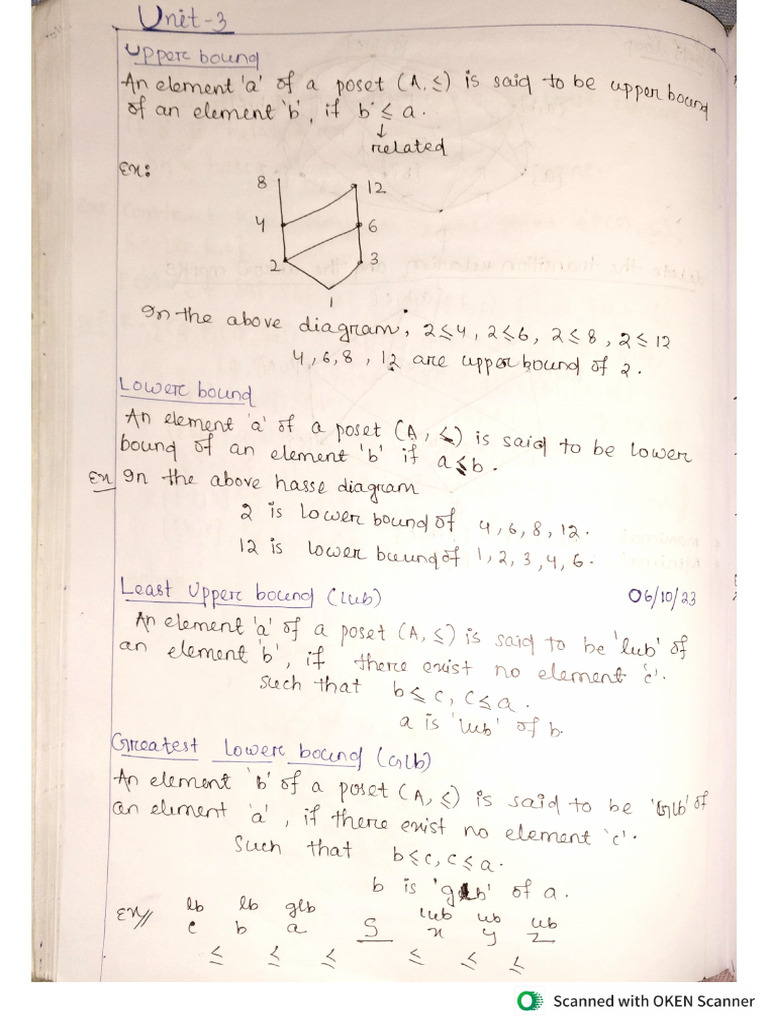 Unit-3
Upper bound
An element 'a' of a poset (A, ≤) is said to be upper bound
of an element 'b', if b ≤ a.
↓
related
Ex:
8 12
4 6
2 3
1
In the above diagram, 2≤4, 2≤6, 2≤8, 2≤12
4, 6, 8, 12 are upper bound of 2.
Lower bound
An element 'a' of a poset (A, ≤) is said to be lower
bound of an element 'b' if a≤b.
Ex In the above hasse diagram
2 is lower bound of 4, 6, 8, 12.
12 is lower bound of 1, 2, 3, 4, 6.
Least Upper bound (lub) 06/10/23
An element 'a' of a poset (A, ≤) is said to be 'lub' of
an element 'b', if there exist no element 'c'.
such that b ≤ c, c ≤ a.
a is 'lub' of b.
Greatest Lower bound (Glb)
An element 'b' of a poset (A, ≤) is said to be 'Glb' of
an element 'a', if there exist no element 'c'.
Such that b ≤ c, c ≤ a.
b is 'glb' of a.
Ex// lb lb glb lub ub ub
c b a S x y z
≤ ≤ ≤ ≤ ≤ ≤
Scanned with OKEN Scanner